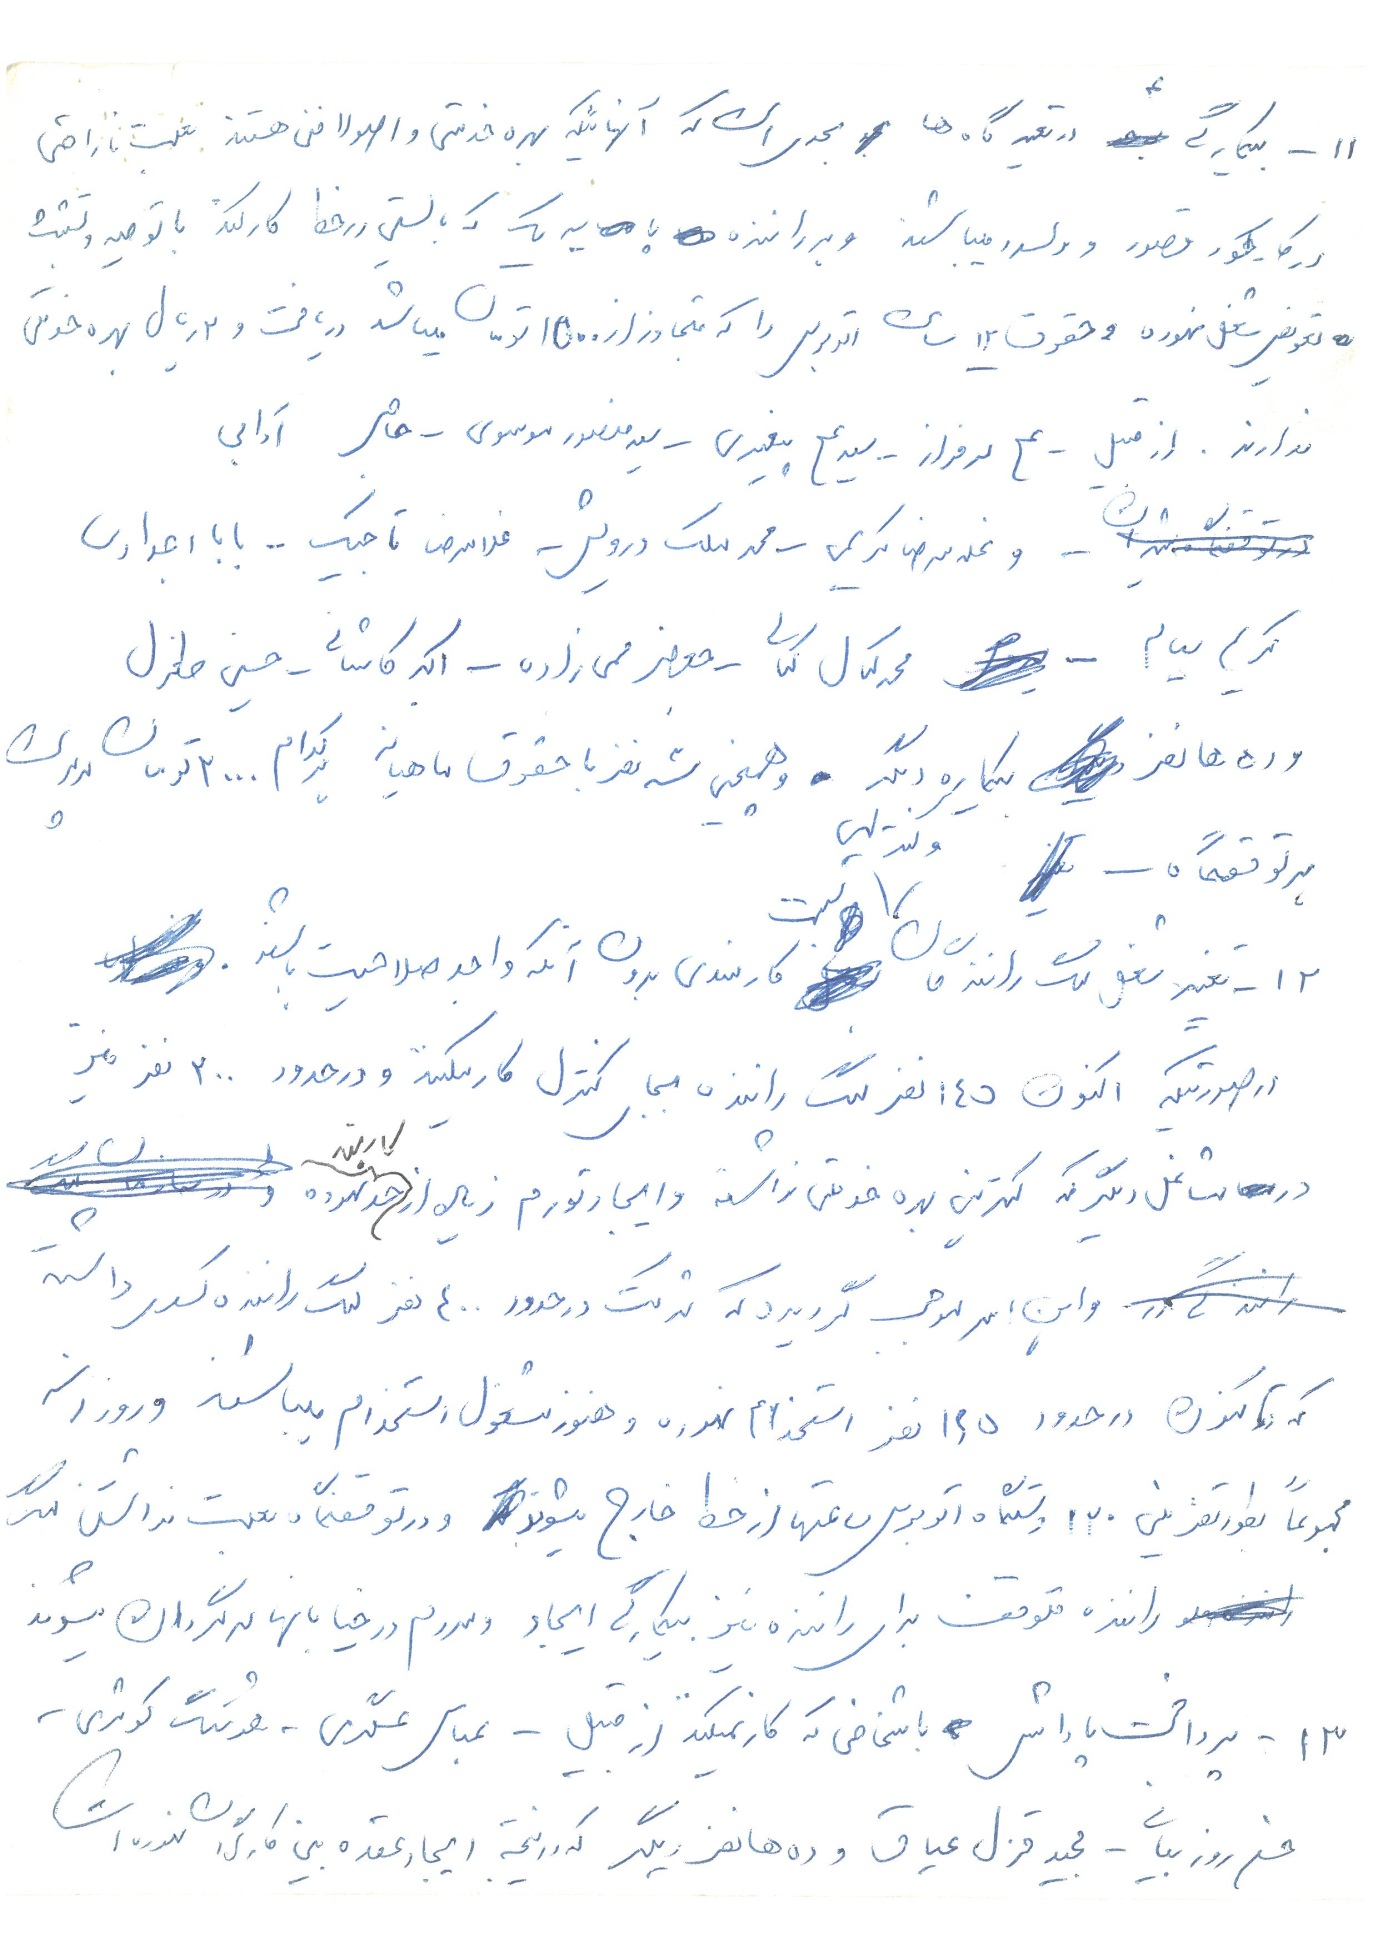 ۱۱ - بیکارگی در تعمیرگاه ها بحدی است که آنهائیکه بهره خدمتی و اصولا فنی هستند بعلت ناراحتی
در کار خود مقصر و دلسرد میباشند و بر راننده پایه یک که بایستی در خط کار کند با توصیه و تشبث
تعویض شغل نموده و حقوق ۱۲ ساعت اتوبوس را که متجاوز از ۱۵۰۰ تومان میباشد دریافت و ۲ ریال بهره خدمتی
ندارند . از قبیل - سرفراز - سید پیغمبری - سید منصور موسوی - آدابی
- و غلامرضا کریمی - محمد ملک درویش - غلامرضا تاجیک - بابا اجدادی
کریم پیام - محمد کمال کمالی - جعفر ممی زاده - اکبر کاشانی - حسین
و ده ها نفر بیکاره دیگر و همچنین سه نفر با حقوق ماهیانه هر کدام ۳۰۰۰ تومان مدیریت
هر توقفگاه -
و کنترلی
۱۲ - تغییر شغل کمک رانندگان بسمت کارمندی بدون آنکه واجد صلاحیت باشند .
در صورتیکه اکنون ۱۴۵ نفر کمک راننده بجای کنترل کار میکنند و در حدود ۲۰۰ نفر نیز
در مشاغل دیگر که کمترین بهره خدمتی نداشته و ایجاد تورم زیاد از حد کارمند نموده
و این امر موجب گردیده که شرکت در حدود ۴۰۰ نفر کمک راننده کسری داشته
که تاکنون در حدود ۱۹۵ نفر استخدام نموده و هنوز مشغول استخدام میباشند و روزانه
مجموعاً بطور تقریبی ۱۲۰ دستگاه اتوبوس منتها از خط خارج میشوند و در توقفگاه بعلت نداشتن کمک
راننده متوقف برای راننده نیز بیکارگی ایجاد و مردم در خیابانها سرگردان میشوند
۱۳ - پرداخت پاداش باشخاصی که کار نمیکنند از قبیل - عباس عسگری - هوشنگ کوثری -
روز بیانی - مجید قزل عیاق و ده ها نفر دیگر که در نتیجه ایجاد عقده بین کارگران نموده است